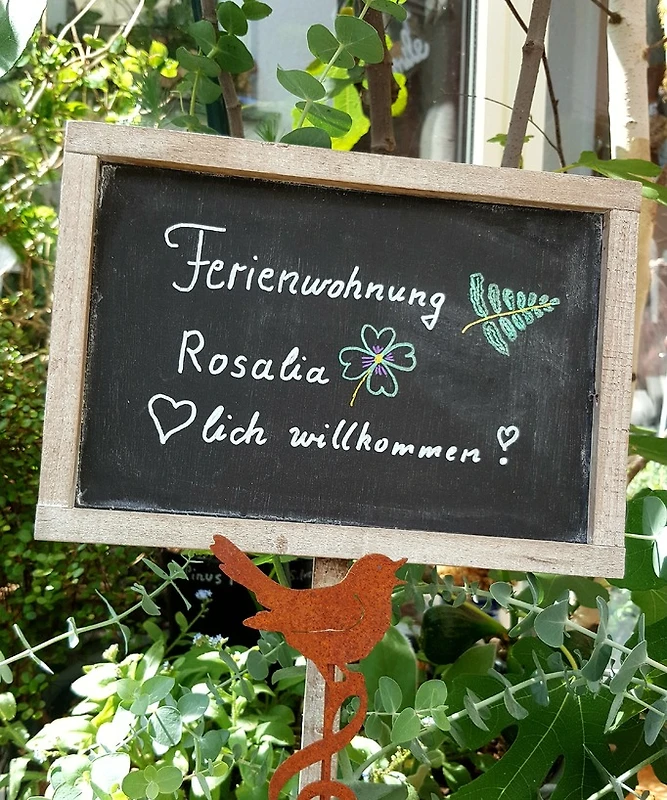 Ferienwohnung
Rosalia
♡lich willkommen!